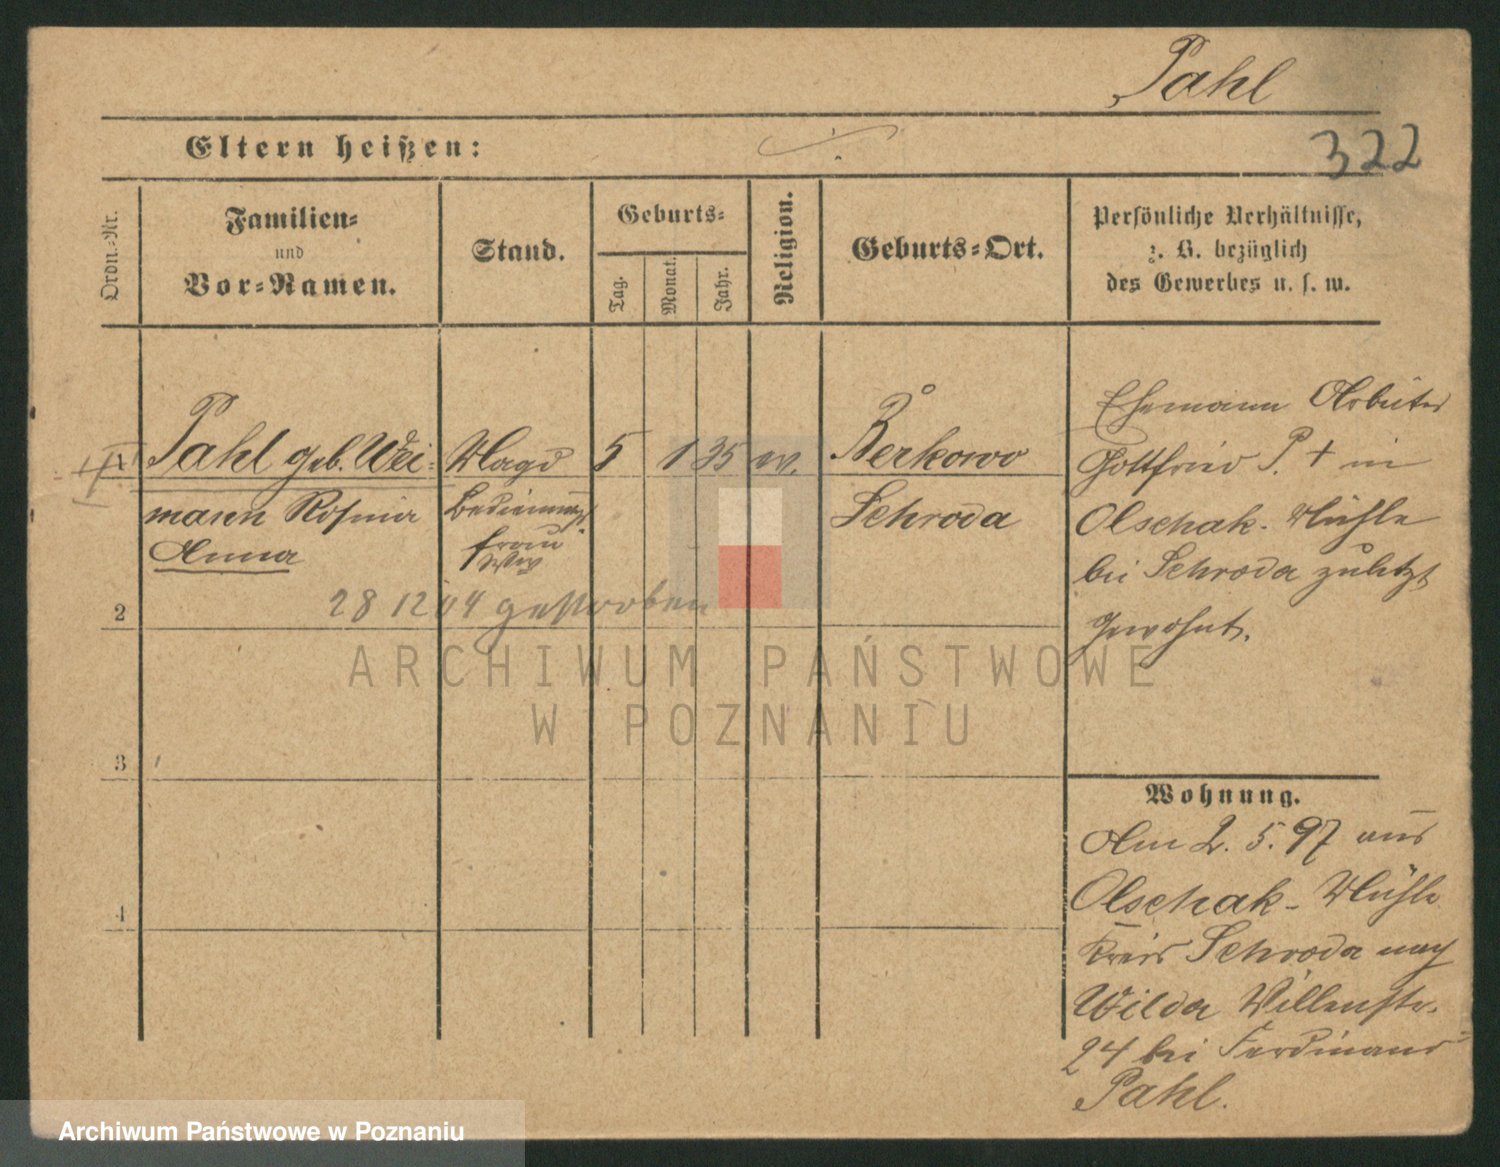 Pahl
322
Eltern heißen:
Ordn.-Nr.
Familien-
und
Vor-Namen.
Stand.
Geburts-
Tag.
Monat.
Jahr.
Religion.
Geburts-Ort.
Persönliche Verhältnisse,
z. B. bezüglich
des Gewerbes u. s. w.
1 Pahl geb. Wei- Magd 5 1 35 ev. Berkowo
mann Rosina Bedienungs- Schroda
Anna frau
Ww
2 28 12 04 gestorben
3
4
Ehemann Arbeiter
Gottfried P. + in
Olschak-Mühle
bei Schroda zuletzt
gewohnt.
Wohnung.
Am 2. 5. 97 aus
Olschak-Mühle
Kreis Schroda nach
Wilda Villenstr.
24 bei Ferdinand
Pahl.
ARCHIWUM PAŃSTWOWE
W POZNANIU
Archiwum Państwowe w Poznaniu